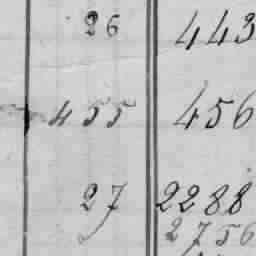 26 443
455 456
27 2288
2756